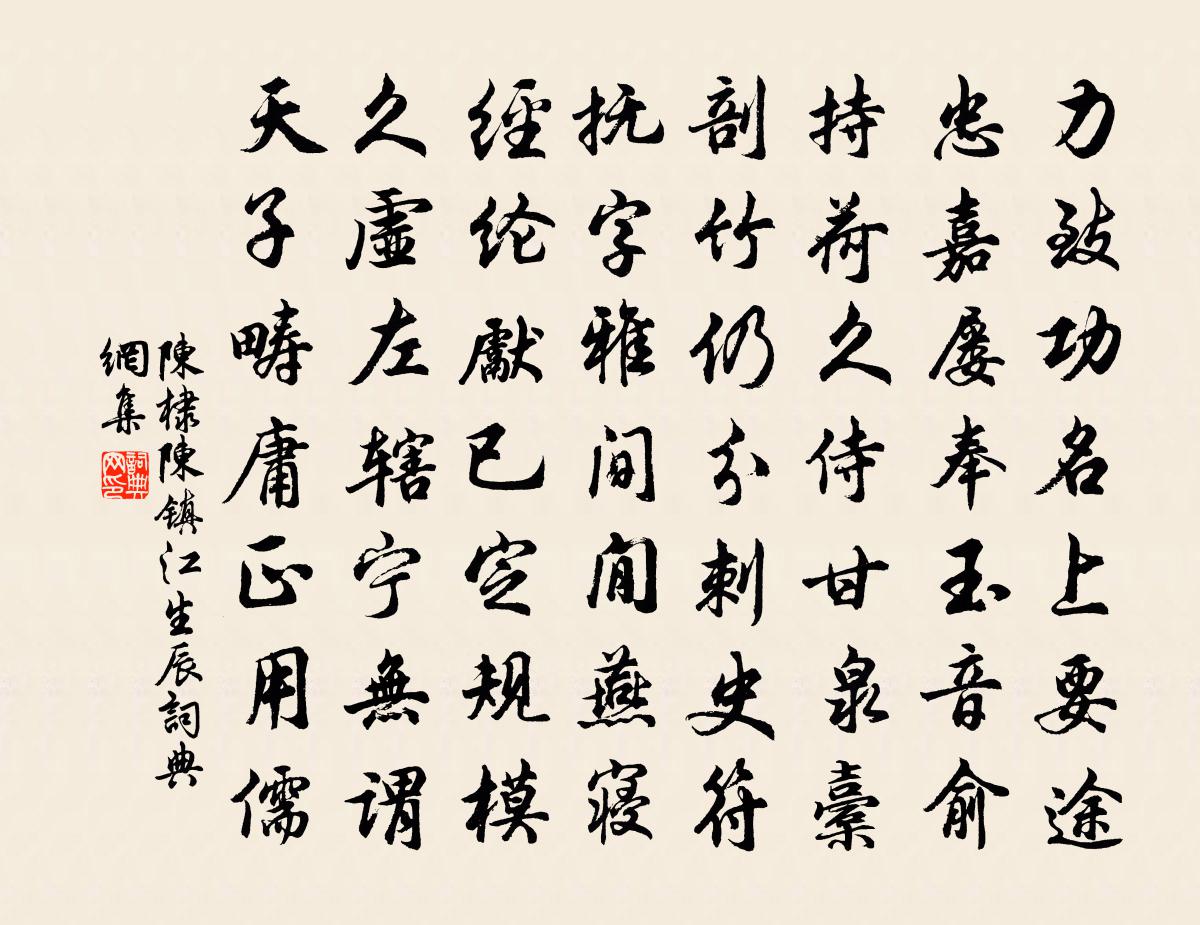 力致功名上要途
忠嘉屡奉玉音俞
持荷久侍甘泉橐
剖竹仍分刺史符
抚字雅间闲燕寝
经纶献已定规模
久虚左辖宁無谓
天子畴庸正用儒
陳棣陳鎮江生辰詞典
網集
詞典网印